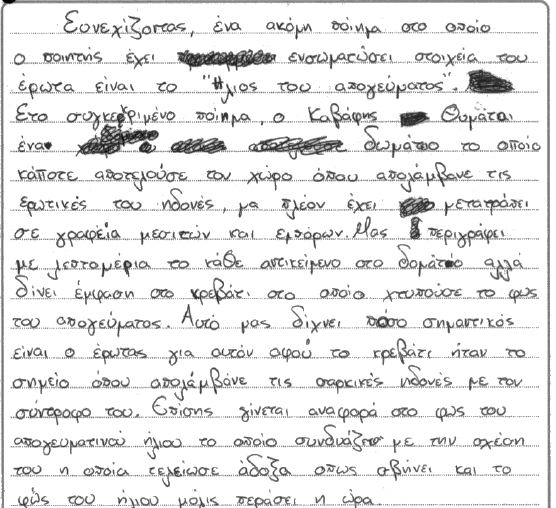 Συνεχίζοντας, ένα ακόμη ποίημα στο οποίο
ο ποιητής έχει ενσωματώσει στοιχεία του
έρωτα είναι το "Ήλιος του απογεύματος".
Στο συγκεκριμένο ποίημα, ο Καβάφης θυμάται
ένα δωμάτιο το οποίο
κάποτε αποτελούσε τον χώρο όπου απολάμβανε τις
ερωτικές του ηδονές, μα πλέον έχει μετατραπεί
σε γραφεία μεσιτών και εμπόρων. Μας περιγράφει
με λεπτομέρια το κάθε αντικείμενο στο δομάτιο αλλά
δίνει έμφαση στο κρεβάτι στο οποίο χτυπούσε το φως
του απογεύματος. Αυτό μας δίχνει πόσο σημαντικός
είναι ο έρωτας για αυτόν αφού το κρεβάτι ήταν το
σημείο όπου απολάμβανε τις σαρκικές ηδονές με τον
σύντροφο του. Επίσης γίνεται αναφορά στο φως του
απογευματινού ήλιου το οποίο συνδυάζει με την σχέση
του η οποία τελείωσε άδοξα οπως σβήνει και το
φώς του ήλιου μόλις περάσει η ώρα.